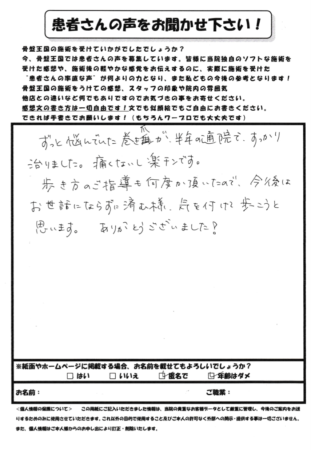 患者さんの声をお聞かせ下さい！
骨盤王国の施術を受けていかがでしたでしょうか？
今、骨盤王国では患者さんの声を募集しています。皆様に当院独自のソフトな施術を
受けた感想や、施術後の軽やかな感覚をお伝えするのに、実際に施術を受けた
“患者さんの率直な声”が何よりの力となり、また私どもの今後の参考となります！
骨盤王国の施術をうけての感想、スタッフの印象や院内の雰囲気
他店との違いなど何でもありますのでお気づきの事をお寄せください。
感想文の書き方は一切自由です！文でも似顔絵でもご自由にお書きください、
できれば手書きでお願いします！（もちろんワープロでも大丈夫です）
ずっと悩んでいた巻き爪が、半年の通院で、すっかり
治りました。痛くないし楽チンです。
歩き方のご指導も何度か頂いたので、今後は
お世話にならずに済む様、気を付けて歩こうと
思います。ありがとうございました！
※紙面やホームページに掲載する場合、お名前を載せてもよろしいでしょうか？
□はい □いいえ ☑匿名で ☑年齢はダメ
お名前： ご職業：
＜個人情報の保護について＞ この用紙にご記入いただきました情報は、当院の貴重なお客様データとして厳重に管理し、今後のご案内をお送
りするためのみに使用させていただきます。これ以外の目的で使用する事およびご本人の許可なく外部への開示・提示する事は一切ございません。
また、個人情報はご本人様からのお申し出により訂正・削除いたします。